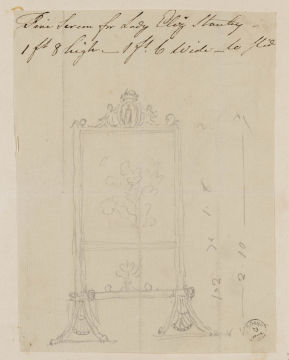 Fire Screen for Lady Eliz Stanley -
1 ft 8 high - 1 ft. 6 Wide - to slide
2 10